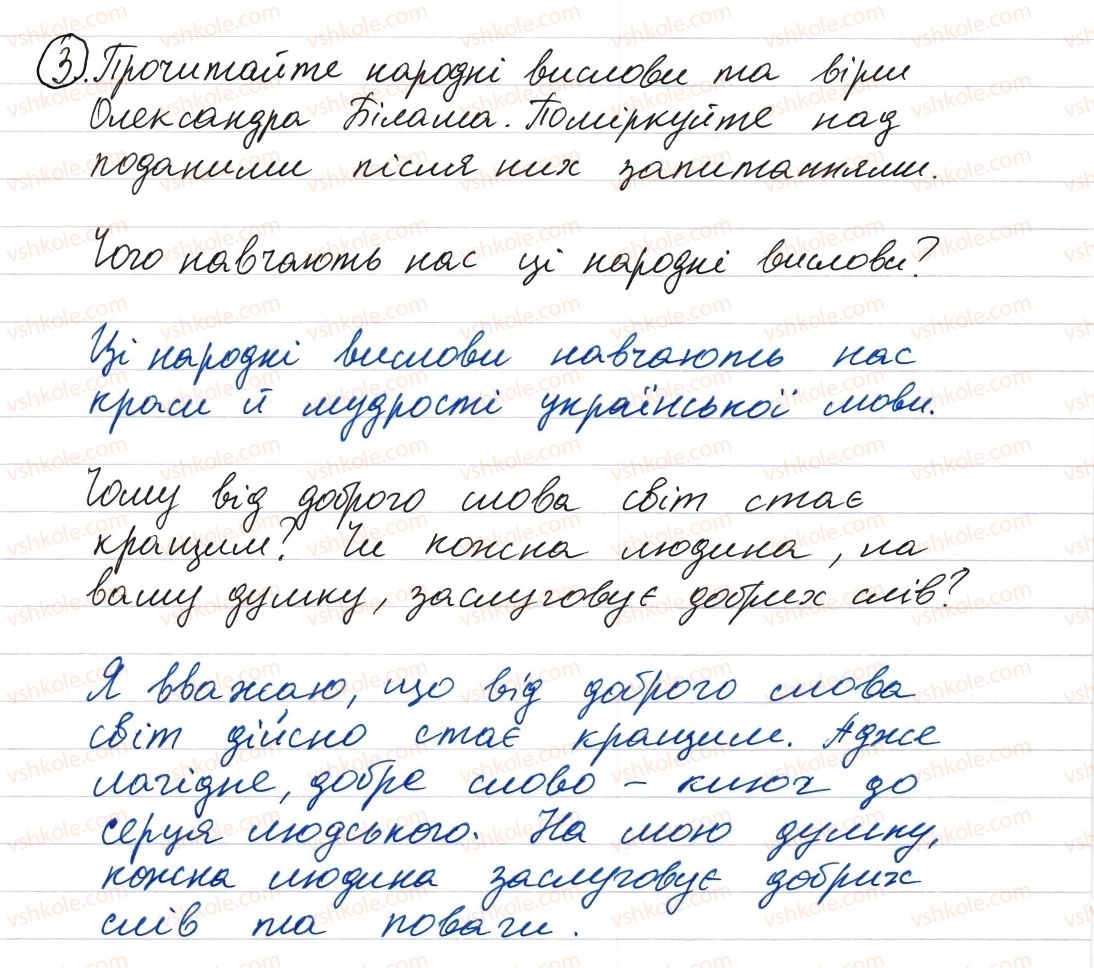 3. Прочитайте народні вислови та вірш
Олександра Білаша. Поміркуйте над
поданими після них запитаннями.
Чого навчають нас ці народні вислови?
Ці народні вислови навчають нас
краси й мудрості української мови.
Чому від доброго слова світ стає
кращим? Чи кожна людина, на
вашу думку, заслуговує добрих слів?
Я вважаю, що від доброго слова
світ дійсно стає кращим. Адже
лагідне, добре слово – ключ до
серця людського. На мою думку,
кожна людина заслуговує добрих
слів та поваги.